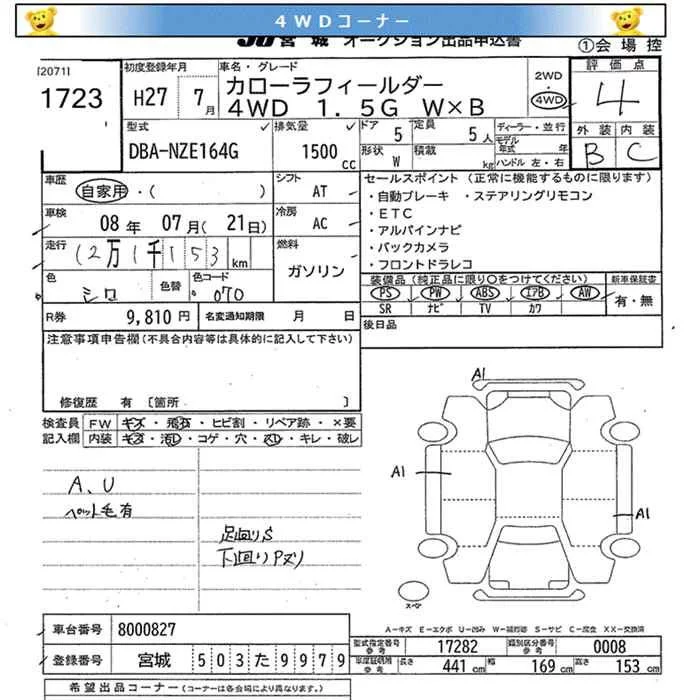 4WDコーナー
JU 宮城 オークション出品申込書
①会場控
[2071]
1723
初度登録年月
H27 7月
車名・グレード
カローラフィールダー
4WD 1.5G W×B
2WD
・
4WD
評価点
4
外装 内装
B C
型式
DBA-NZE164G
排気量
1500 cc
ドア 5
定員 5人
形状 W
積載 kg
ディーラー・並行
モデル年式 年
ハンドル 左・右
車歴
自家用・( )
シフト AT
車検
08年 07月(21日)
冷房 AC
走行
12万1千153 km
燃料
ガソリン
色
シロ
色替
色コード
070
セールスポイント (正常に機能するものに限ります)
・自動ブレーキ ・ステアリングリモコン
・ETC
・アルパインナビ
・バックカメラ
・フロントドラレコ
装備品(純正品に限り○をつけてください)
PS PW ABS エアB AW
SR ナビ TV カワ
新車保証書
有・無
R券 9,810円
名変通知期限 月 日
後日品
注意事項申告欄(不具合内容等は具体的に記入して下さい)
修復歴 有 〔箇所 〕
検査員
記入欄
FW キズ・飛石・ヒビ割・リペア跡・×要
内装 キズ・汚レ・コゲ・穴・スレ・キレ・破レ
A、U
ペット毛有
足回りS
下回りPヌリ
A1
A1
A1
スペア
A-キズ E-エクボ U-凹み W-補修跡 S-サビ C-腐食 XX-交換済
車台番号 8000827
登録番号 宮城 503た9979
型式指定番号
参考 17282
類別区分番号
参考 0008
車庫証明用
参考
長さ 441cm 幅 169cm 高さ 153cm
希望出品コーナー(コーナーは各会場により異なります。)